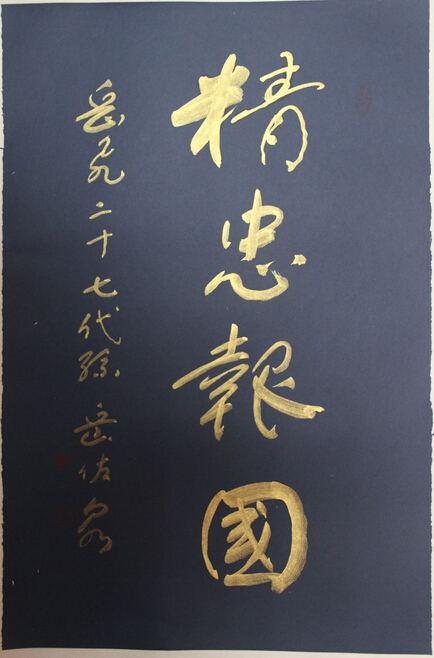 精忠報國
岳飛二十七代孫 岳佐泉